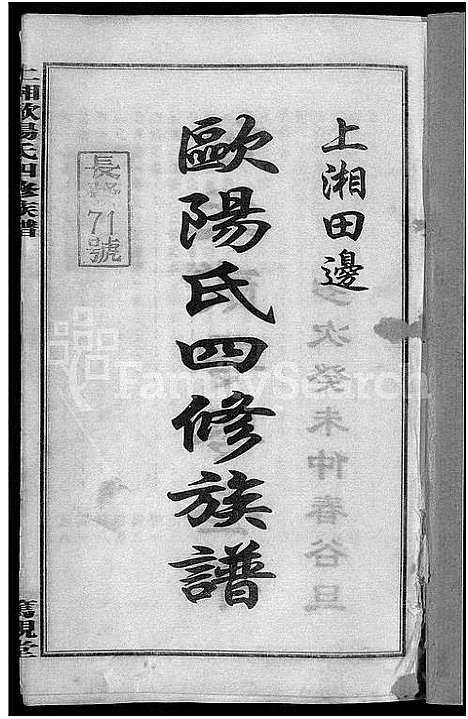 上湘田邊
歐陽氏四修族譜
長字
71
號
上湘歐陽氏四修族譜
篤親堂
歲次癸未仲春谷旦
FamilySearch